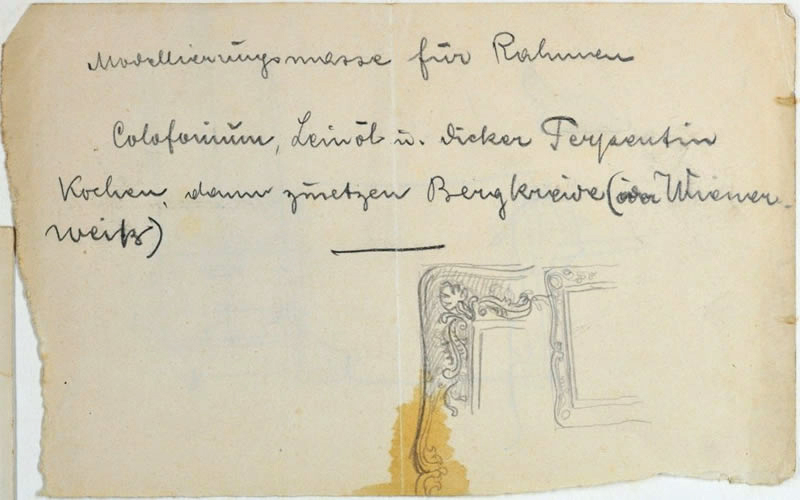 Modellierungsmasse für Rahmen
Colofonium, Leinöl u. dicker Terpentin
Kochen, dann zusetzen Bergkreide (oder Wiener-
weiß)